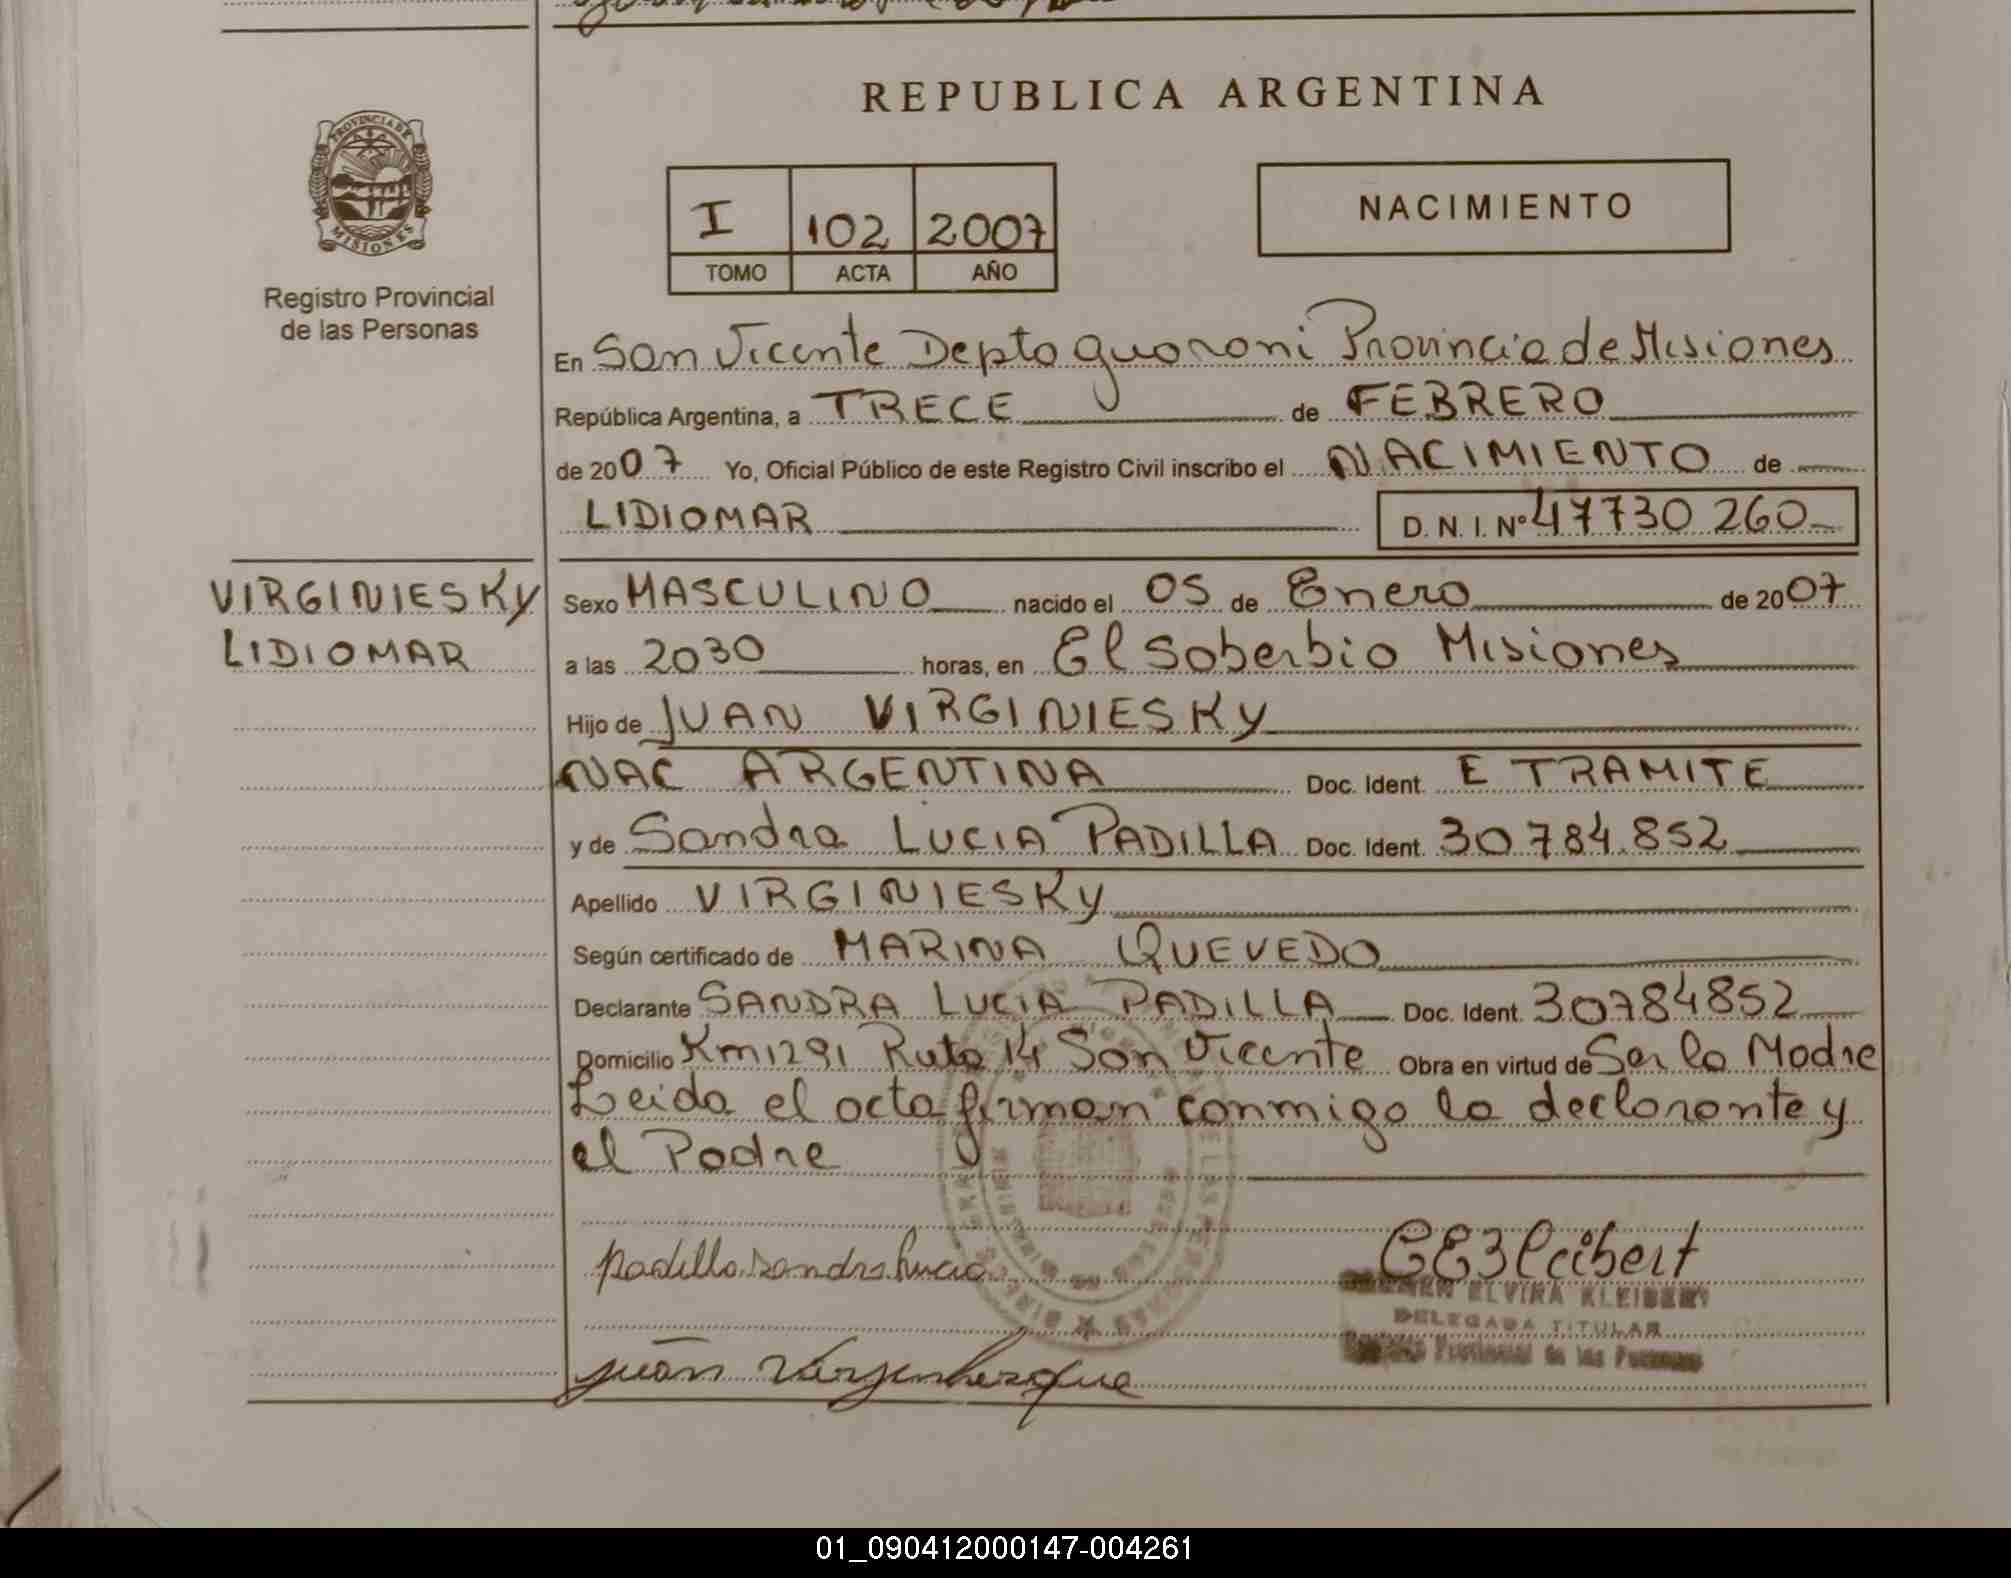 REPUBLICA ARGENTINA
PROVINCIA DE
MISIONES
Registro Provincial
de las Personas
I 102 2007
TOMO ACTA AÑO
NACIMIENTO
En San Vicente Depto guarani Provincia de Misiones
República Argentina, a TRECE de FEBRERO
de 2007 Yo, Oficial Público de este Registro Civil inscribo el NACIMIENTO de
LIDIOMAR D. N. I. Nº 47730 260
VIRGINIESKY
LIDIOMAR
Sexo MASCULINO nacido el 05 de Enero de 2007
a las 2030 horas, en El Soberbio Misiones
Hijo de JUAN VIRGINIESKY
NAC ARGENTINA Doc. Ident. E TRAMITE
y de Sandra LUCIA PADILLA Doc. Ident. 30 784.852
Apellido VIRGINIESKY
Según certificado de MARINA QUEVEDO
Declarante SANDRA LUCIA PADILLA Doc. Ident. 30784852
Domicilio Km1291 Ruta 14 San Vicente Obra en virtud de Ser la Madre
Leida el acta firman conmigo la declarante y
el Padre
padilla sandra lucia
CE3leibert
ELVIRA KLEIBERT
DELEGADA TITULAR
Provincial de las Personas
juan
01_090412000147-004261